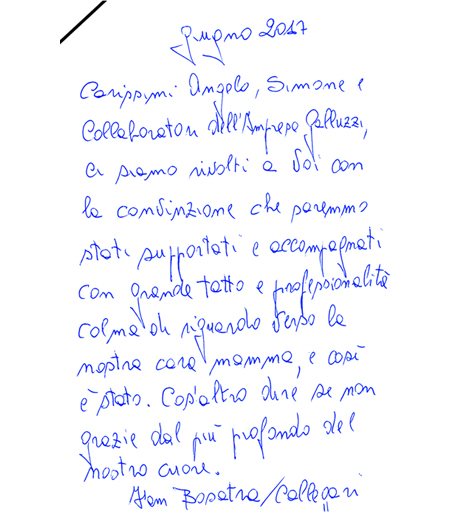 giugno 2017
Carissimi Angelo, Simone e
Collaboratori dell'Impresa Galluzzi,
ci siamo rivolti a Voi con
la convinzione che saremmo
stati supportati e accompagnati
con grande tatto e professionalità
colma di riguardo verso la
nostra cara mamma, e così
è stato. Cos'altro dire se non
grazie dal più profondo del
nostro cuore.
Fam Bosatra/Callegari